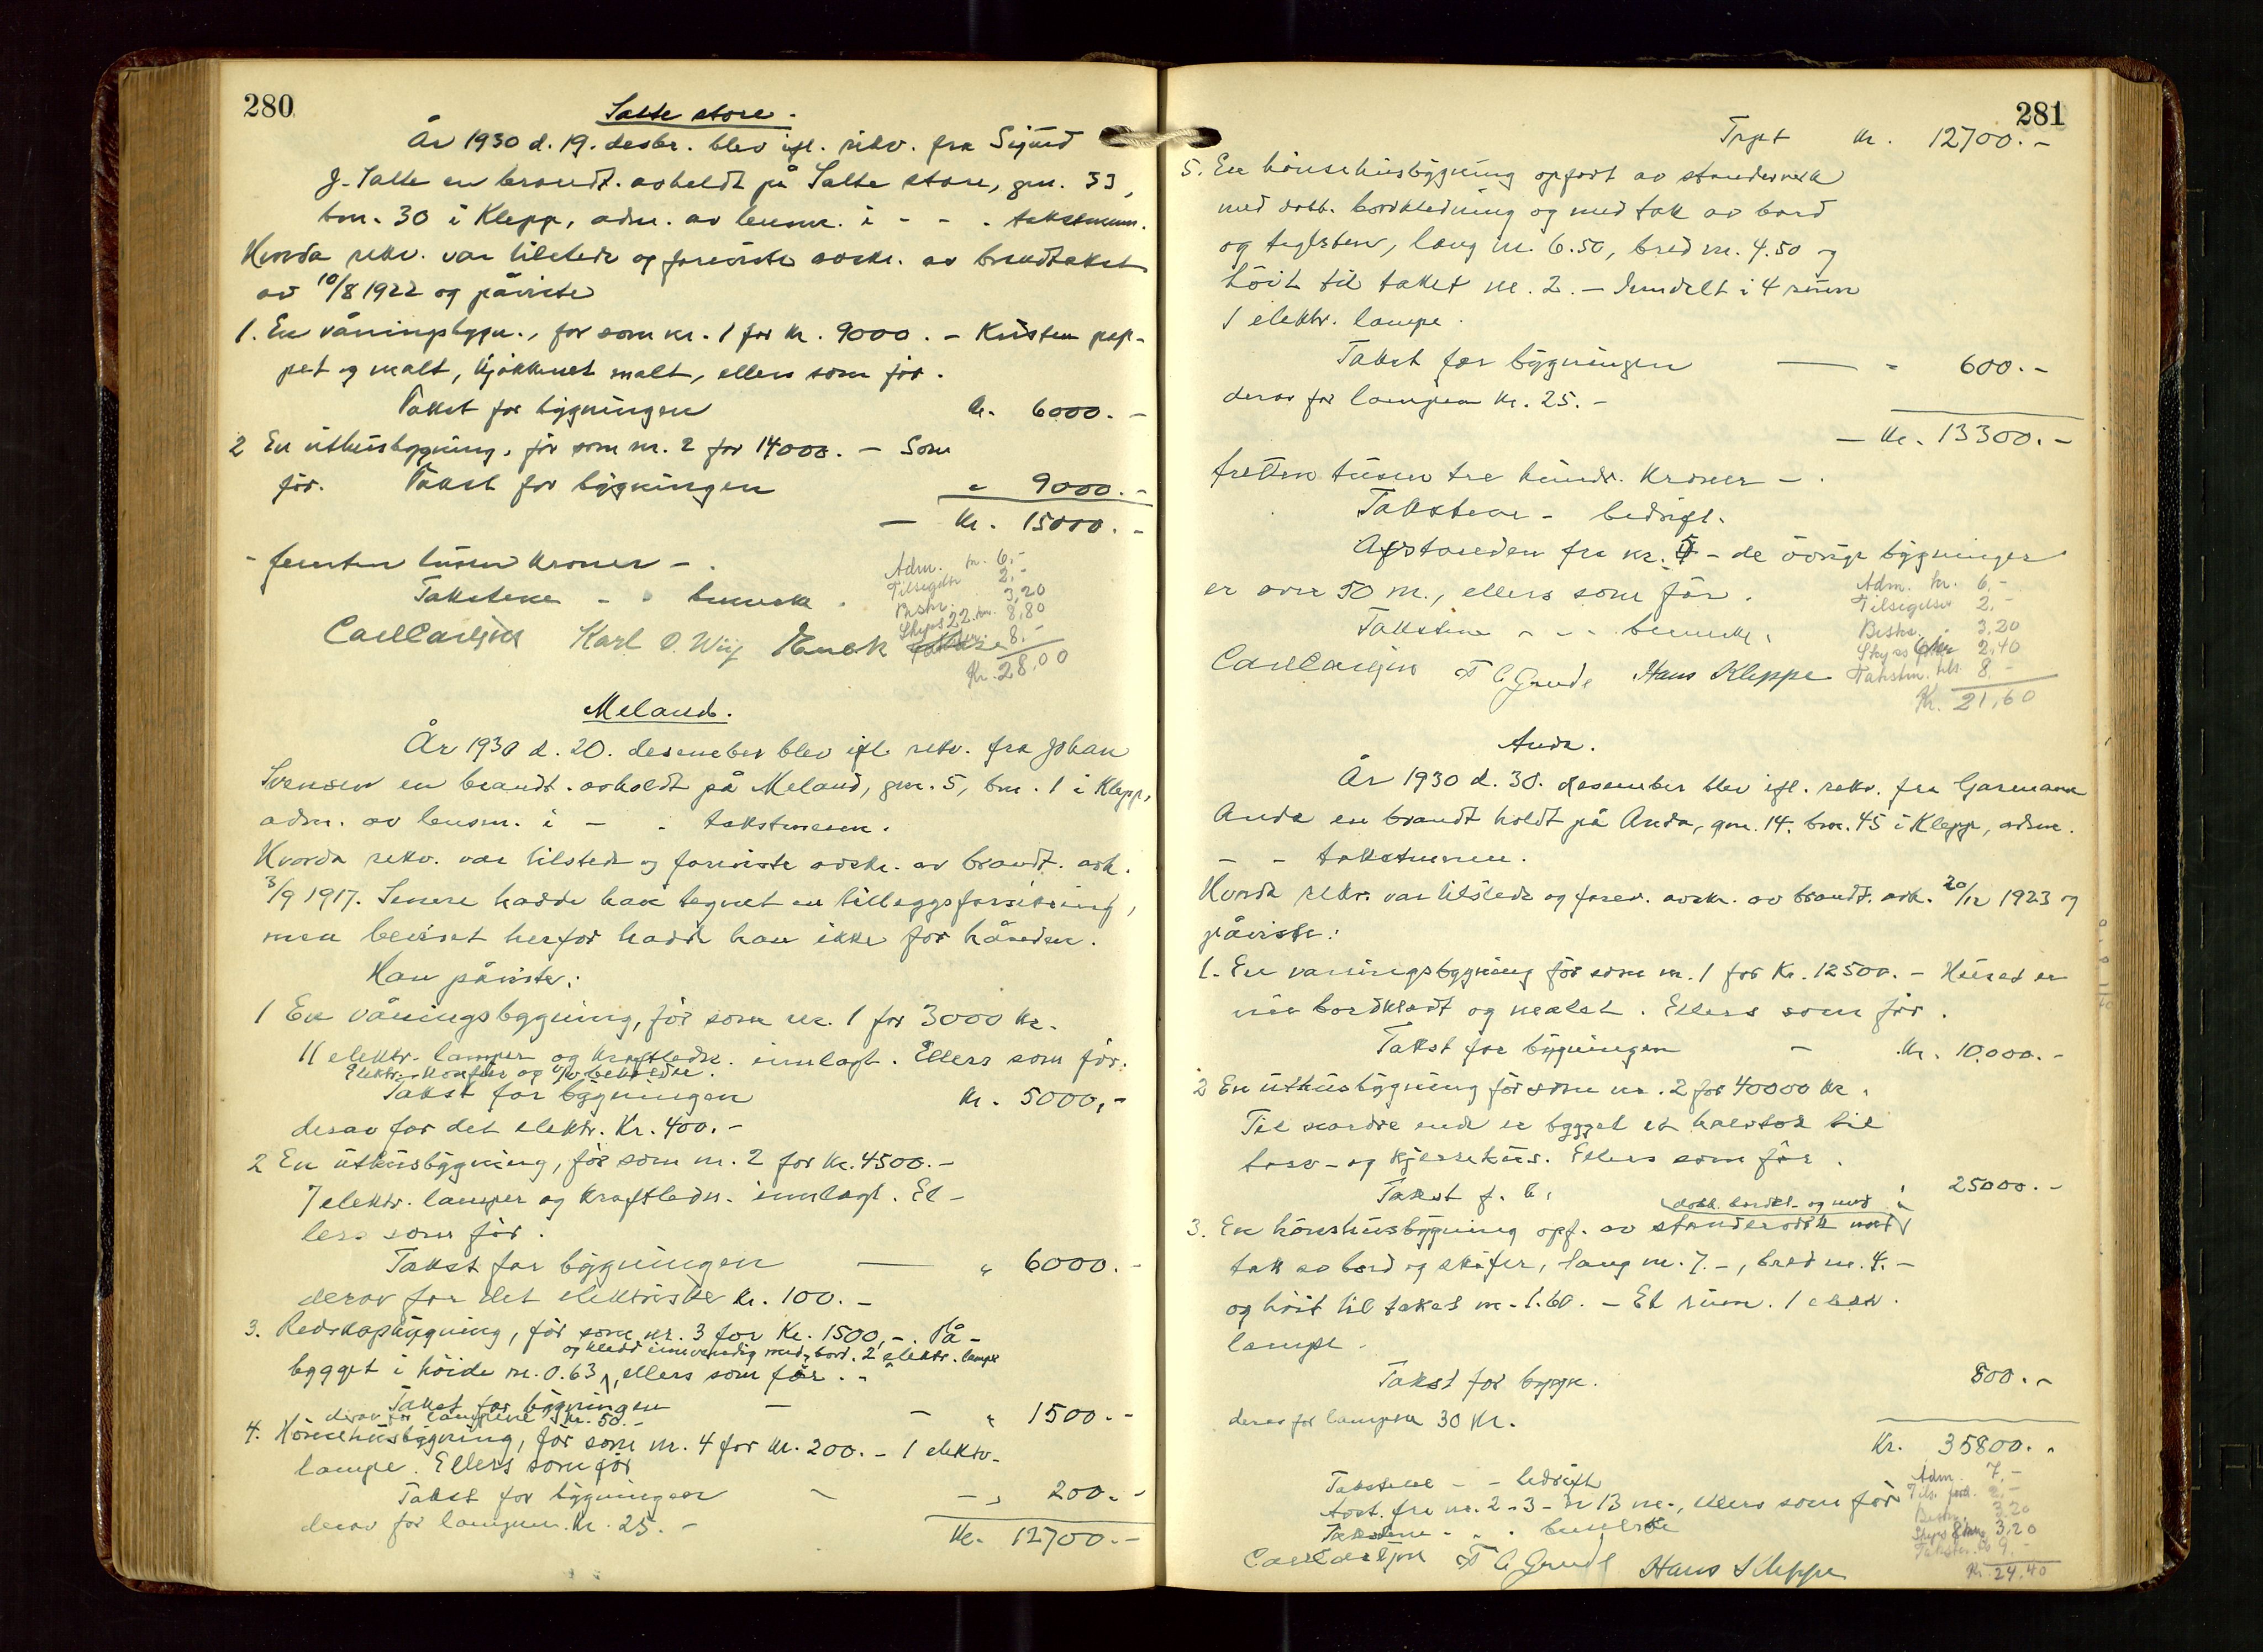 280
Salte store.
År 1930 d. 19. desbr. blev ifl. rekv. fra Sigurd
J. Salte en brandt. avholdt på Salte store, gnr. 33,
bnr. 30 i Klepp, adm. av lensm. i - - - takstmenn.
Hvorda rekv. var tilstede og foreviste avskr. av brandtakst
av 10/8 1922 og påviste
1. En våningsbygn., før som nr. 1 for kr. 9000. - Kvisten pap-
pet og malt, kjøkkenet malt, ellers som før.
Takst for bygningen kr. 6000. -
2 En uthusbygning, før som nr. 2 for 14000. - Som
før. Takst for bygningen " 9000. -
- Kr. 15000. -
- femten tusen kroner - .
Takstene - - bemerk.
Adm. kr. 6,-
Tilsigelse 2,-
Beskr. 3,20
Skyss 22 km. 8,80
8,-
Kr. 28,00
Carl Carlsen Karl O. Wiig
Meland.
År 1930 d. 20. desember blev ifl. rekv. fra Johan
Svensen en brandt. avholdt på Meland, gnr. 5, bnr. 1 i Klepp,
adm. av lensm. i - - takstmenn.
Hvorda rekv. var tilstede og foreviste avskr. av brandt. avh.
3/9 1917. Senere hadde han tegnet en tilleggsforsikring,
men beviset herfor hadde han ikke for hånden.
Han påviste:
1 En våningsbygning, før som nr. 1 for 3000 kr.
11 elektr. lamper og kraftledn. innlagt. Ellers som før.
Elektr. komfur og v/v beholder.
Takst for bygningen kr. 5000,-
derav for det elektr. Kr. 400.-
2 En uthusbygning, før som nr. 2 for kr. 4500.-
7 elektr. lamper og kraftledn. innlagt. El-
lers som før.
Takst for bygningen — " 6000.-
derav for det elektriske kr. 100.-
3. Redskapsbygning, før som nr. 3 for Kr. 1500,-. På-
og kledd innvendig med bord. 2 elektr. lamper
bygget i høide m. 0.63, ellers som før. -
Takst for bygningen - - " 1500.-
derav for lampene kr. 50.-
4. Hönsehusbygning, før som nr. 4 for kr. 200.- 1 elektr.
lampe. Ellers som før
Takst for bygningen - - " 200.-
derav for lampen kr. 25.-
Kr. 12700.-
281
Trpt kr. 12700.-
5. En hönsehusbygning opført av stenderverk
med dobb. bordkledning og med tak av bord
og teglsten, lang m. 6.50, bred m. 4.50 og
höit til taket m. 2.- Inndelt i 4 rum
1 elektr. lampe.
Takst for bygningen — " 600.-
derav for lampen kr. 25.-
- Kr. 13300.-
tretten tusen tre hundr. kroner - .
Takstene - bedrift.
Afstanden fra nr. 5 - de övrige bygninger
er over 50 m., ellers som før.
Takstene - - - bemerk.
Adm. kr. 6,-
Tilsigelse 2,-
Beskr. " 3,20
Skyss 6 km 2,40
Takstm. tils. 8,-
Kr. 21,60
Carl Carlsen T C Grude Hans Kleppe
Anda.
År 1930 d. 30. desember blev ifl. rekv. fra Garmann
Anda en brandt holdt på Anda, gnr. 14. bnr. 45 i Klepp, adm.
- - takstmenn.
Hvorda rekv. var tilstede og forev. avskr. av brandt. avh. 20/12 1923 og
påviste:
1. En vaningsbygning før som nr. 1 for Kr. 12500.- Huset er
nu bordkledt og malet. Ellers som før.
Takst for bygningen - Kr. 10.000.-
2 En uthusbygning før som nr. 2 for 40000 kr.
Til nordre ende er bygget et halvtak til
torv- og kjerrehus. Ellers som før.
Takst f. b. " 25000.-
dobb. bordkl. og med
3. En hönshusbygning opf. av stenderverk med
tak av bord og skifer, lang m. 7.-, bred m. 4.-
og höit til taket m. 1.60. - Et rum. 1 elektr.
lampe.
Takst for bygn. 800.-
derav for lampen 30 kr.
Kr. 35800. -
Takstene - - bedrift
Avst. fra nr. 2 - 3 - er 13 m., ellers som før
Takstene - - - bemerke
Adm. 7,-
Tils. 2,-
Beskr. 3,20
Skyss 8 km 3,20
Takstm. 9,-
Kr. 24,40
Carl Carlsen T C Grude Hans Kleppe